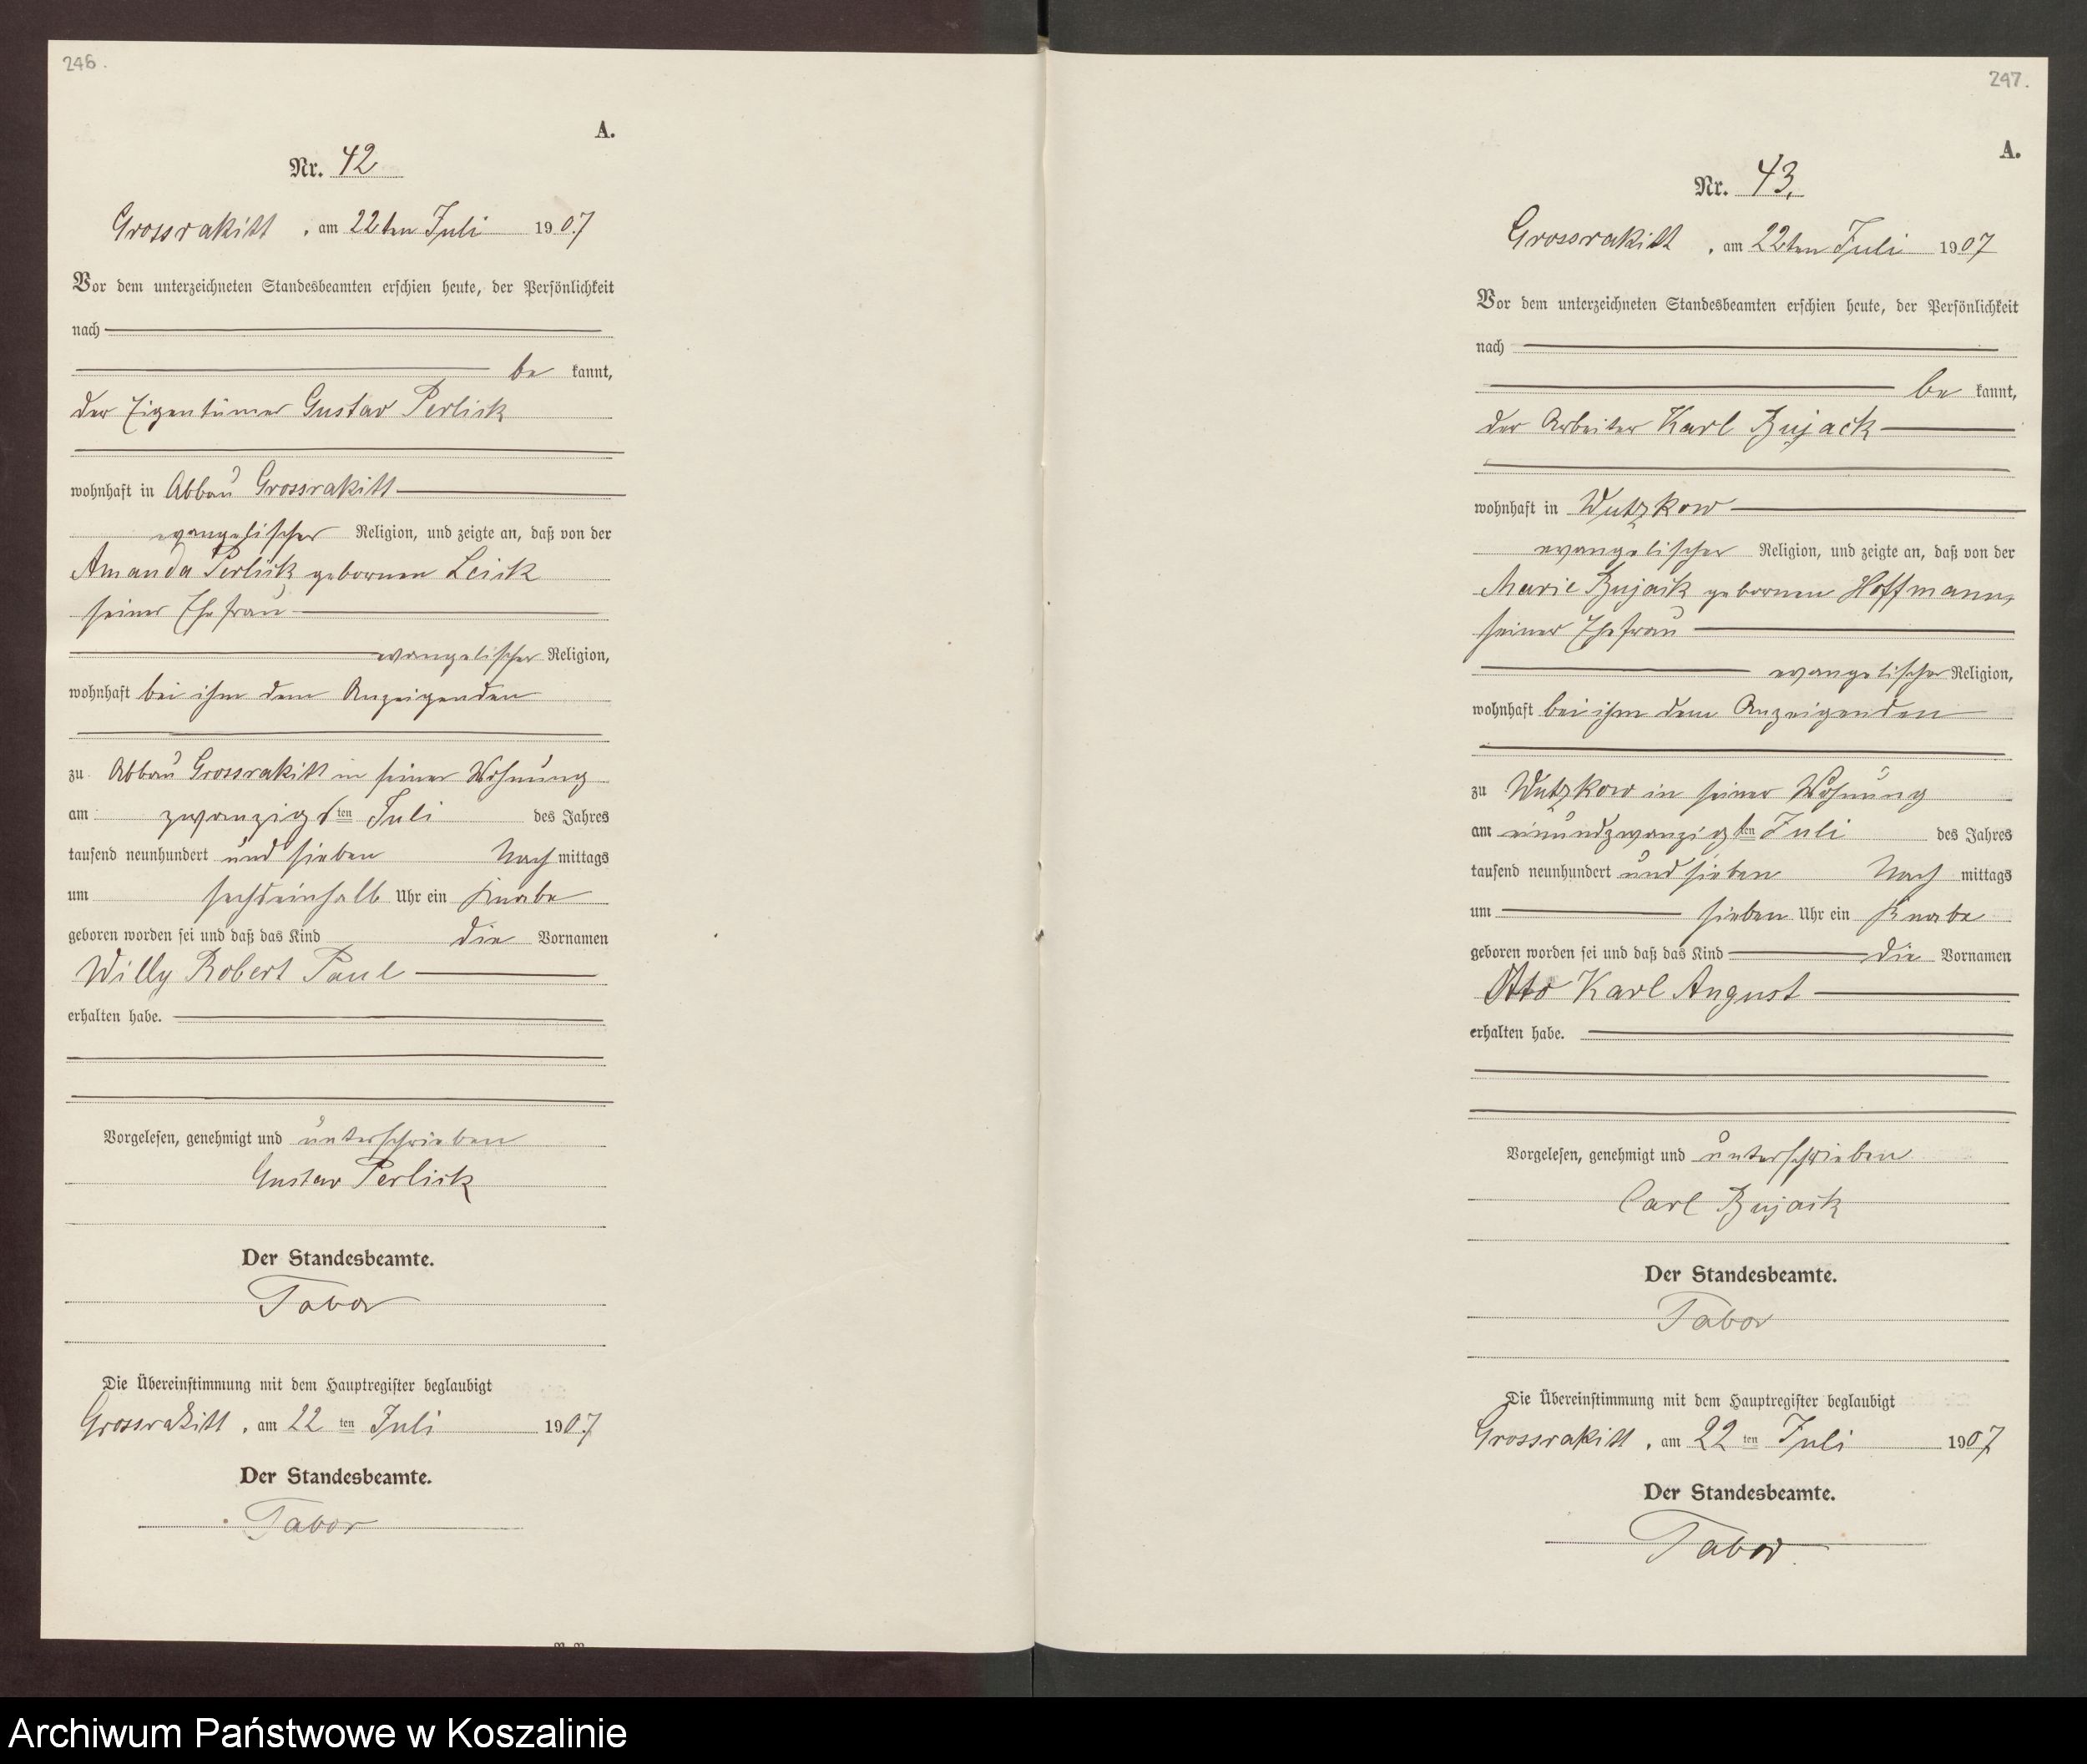 246.
A.
Nr. 42
Grossrakitt, am 22ten Juli 1907
Vor dem unterzeichneten Standesbeamten erschien heute, der Persönlichkeit
nach
be kannt,
der Eigentümer Gustav Perlick
wohnhaft in Abbau Grossrakitt
evangelischer Religion, und zeigte an, daß von der
Amanda Perlick gebornen Leick
seiner Ehefrau
evangelischer Religion,
wohnhaft bei ihm dem Anzeigenden
zu Abbau Grossrakitt in seiner Wohnung
am zwanzigsten Juli des Jahres
tausend neunhundert und sieben Nach mittags
um sechseinhalb Uhr ein Knabe
geboren worden sei und daß das Kind die Vornamen
Willy Robert Paul
erhalten habe.
Vorgelesen, genehmigt und unterschrieben
Gustav Perlick
Der Standesbeamte.
Tabor
Die Übereinstimmung mit dem Hauptregister beglaubigt
Grossrakitt, am 22 ten Juli 1907
Der Standesbeamte.
Tabor
247.
A.
Nr. 43.
Grossrakitt, am 22ten Juli 1907
Vor dem unterzeichneten Standesbeamten erschien heute, der Persönlichkeit
nach
be kannt,
der Arbeiter Karl Bujack
wohnhaft in Wutzkow
evangelischer Religion, und zeigte an, daß von der
Marie Bujack gebornen Hoffmann,
seiner Ehefrau
evangelischer Religion,
wohnhaft bei ihm dem Anzeigenden
zu Wutzkow in seiner Wohnung
am einundzwanzigsten Juli des Jahres
tausend neunhundert und sieben Nach mittags
um sieben Uhr ein Knabe
geboren worden sei und daß das Kind die Vornamen
Otto Karl August
erhalten habe.
Vorgelesen, genehmigt und unterschrieben
Carl Bujack
Der Standesbeamte.
Tabor
Die Übereinstimmung mit dem Hauptregister beglaubigt
Grossrakitt, am 22 ten Juli 1907
Der Standesbeamte.
Tabor.
Archiwum Państwowe w Koszalinie